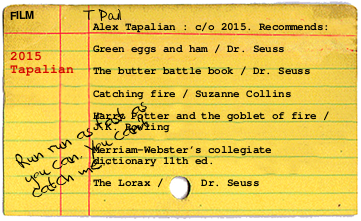 FILM
T Pail
2015
Tapalian
Alex Tapalian : c/o 2015. Recommends:
Green eggs and ham / Dr. Seuss
The butter battle book / Dr. Seuss
Catching fire / Suzanne Collins
Harry Potter and the goblet of fire /
J.K. Rowling
Merriam-Webster's collegiate
dictionary 11th ed.
The Lorax / Dr. Seuss
Run run as fast as
you can, you can't
catch me